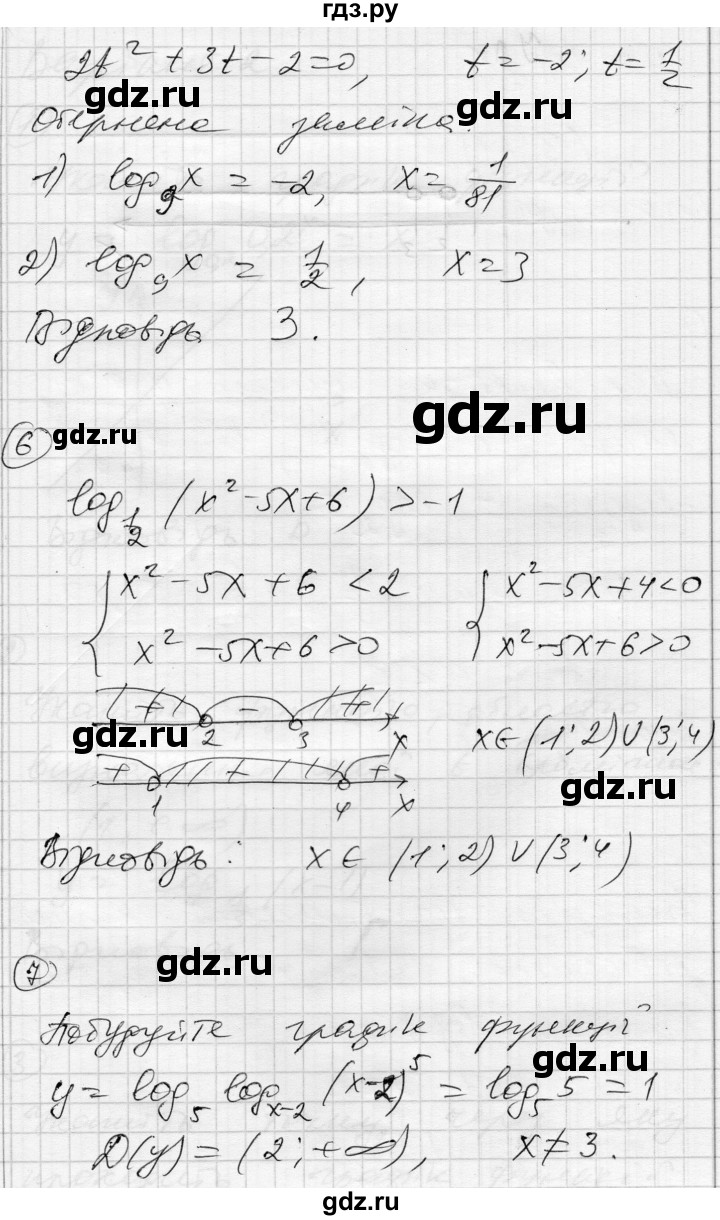 гдз.ру
2t² + 3t - 2 = 0, t = -2; t = 1/2
gdz.ru gdz.ru
Обернена заміна.
1) log₉x = -2, x = 1/81
2) log₉x = 1/2, x = 3
Відповідь 3.
gdz.ru
6 gdz.ru
log_{1/2} (x² - 5x + 6) > -1
{ x² - 5x + 6 < 2 { x² - 5x + 4 < 0
x² - 5x + 6 > 0 x² - 5x + 6 > 0
+ - +
2 3 x x ∈ (1; 2) ∪ (3; 4)
gdz.ru
+ - +
1 4 x
gdz.ru
Відповідь: x ∈ (1; 2) ∪ (3; 4)
7 gdz.ru
Побудуйте графік функції
gdz.ru
y = log₅ log_{x-2} (x-2)⁵ = log₅ 5 = 1
D(y) = (2; +∞), x ≠ 3.
gdz.ru